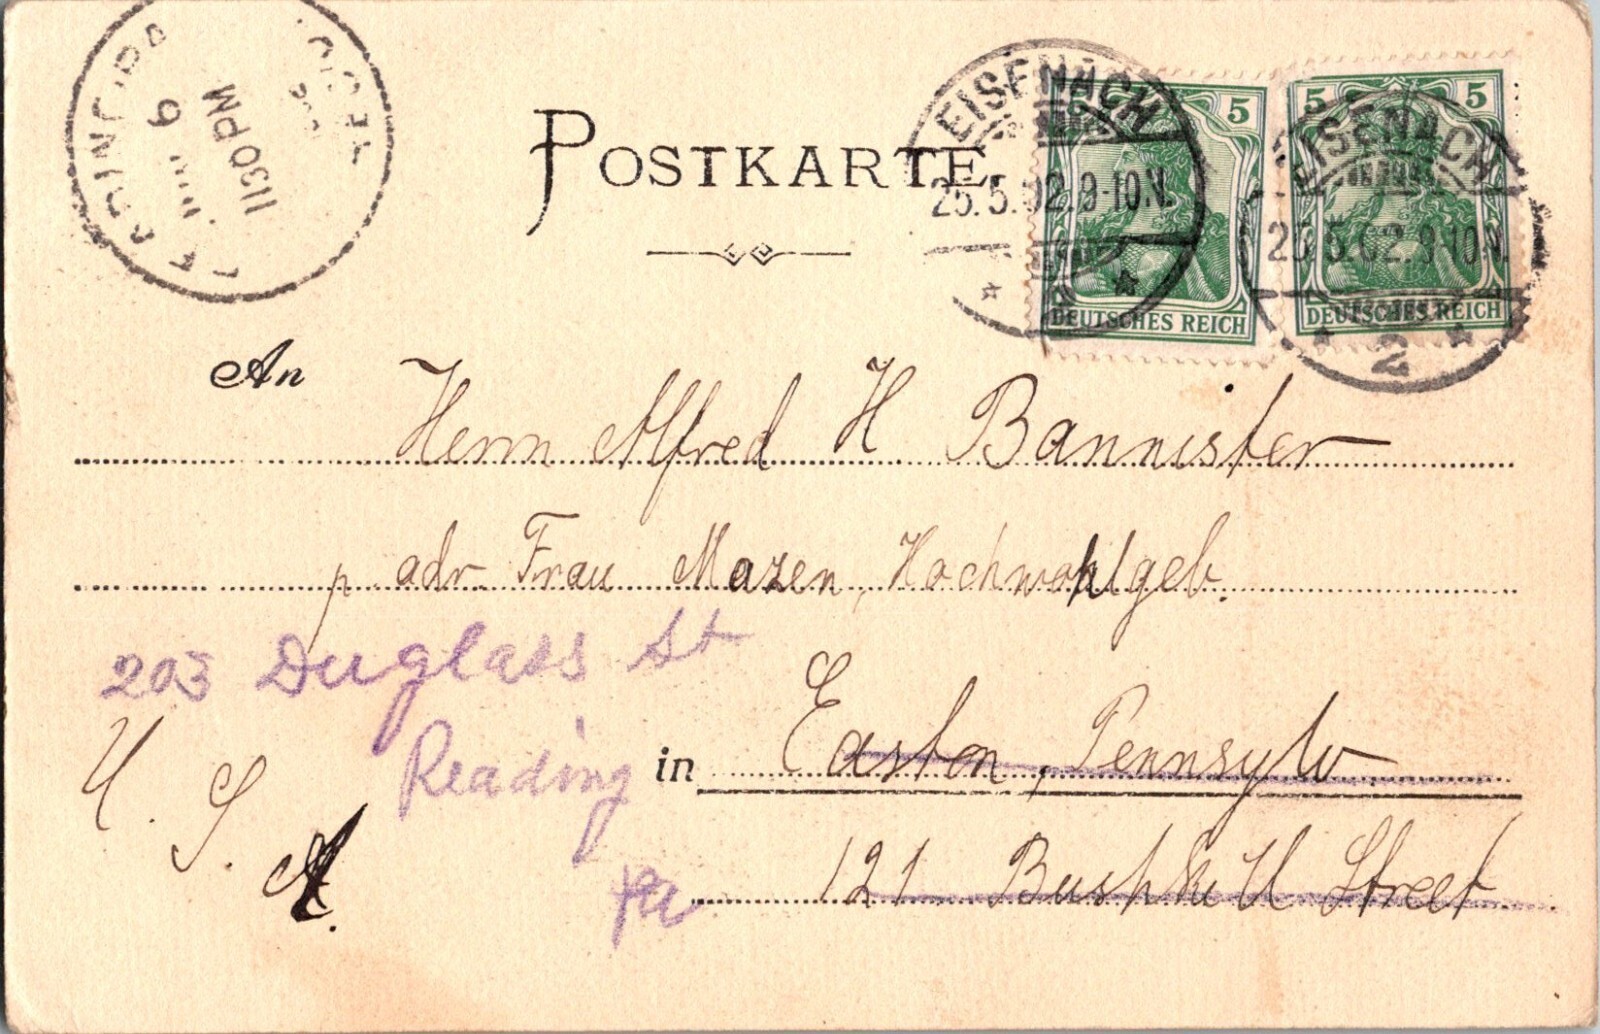 READING, PA.
JUN 6
1130 PM
REC'D.
POSTKARTE
EISENACH
25.5.02.9-10.V.
5 5
DEUTSCHES REICH
EISENACH
25.5.02.9-10V.
2
5 5
DEUTSCHES REICH
An
Herrn Alfred H Bannister
p. adr. Frau Mazen, Hochwohlgeb.
203 Duglass St
U. S. A.
Reading
Pa
in Easton, Pennsylv
121 Bushkill Street